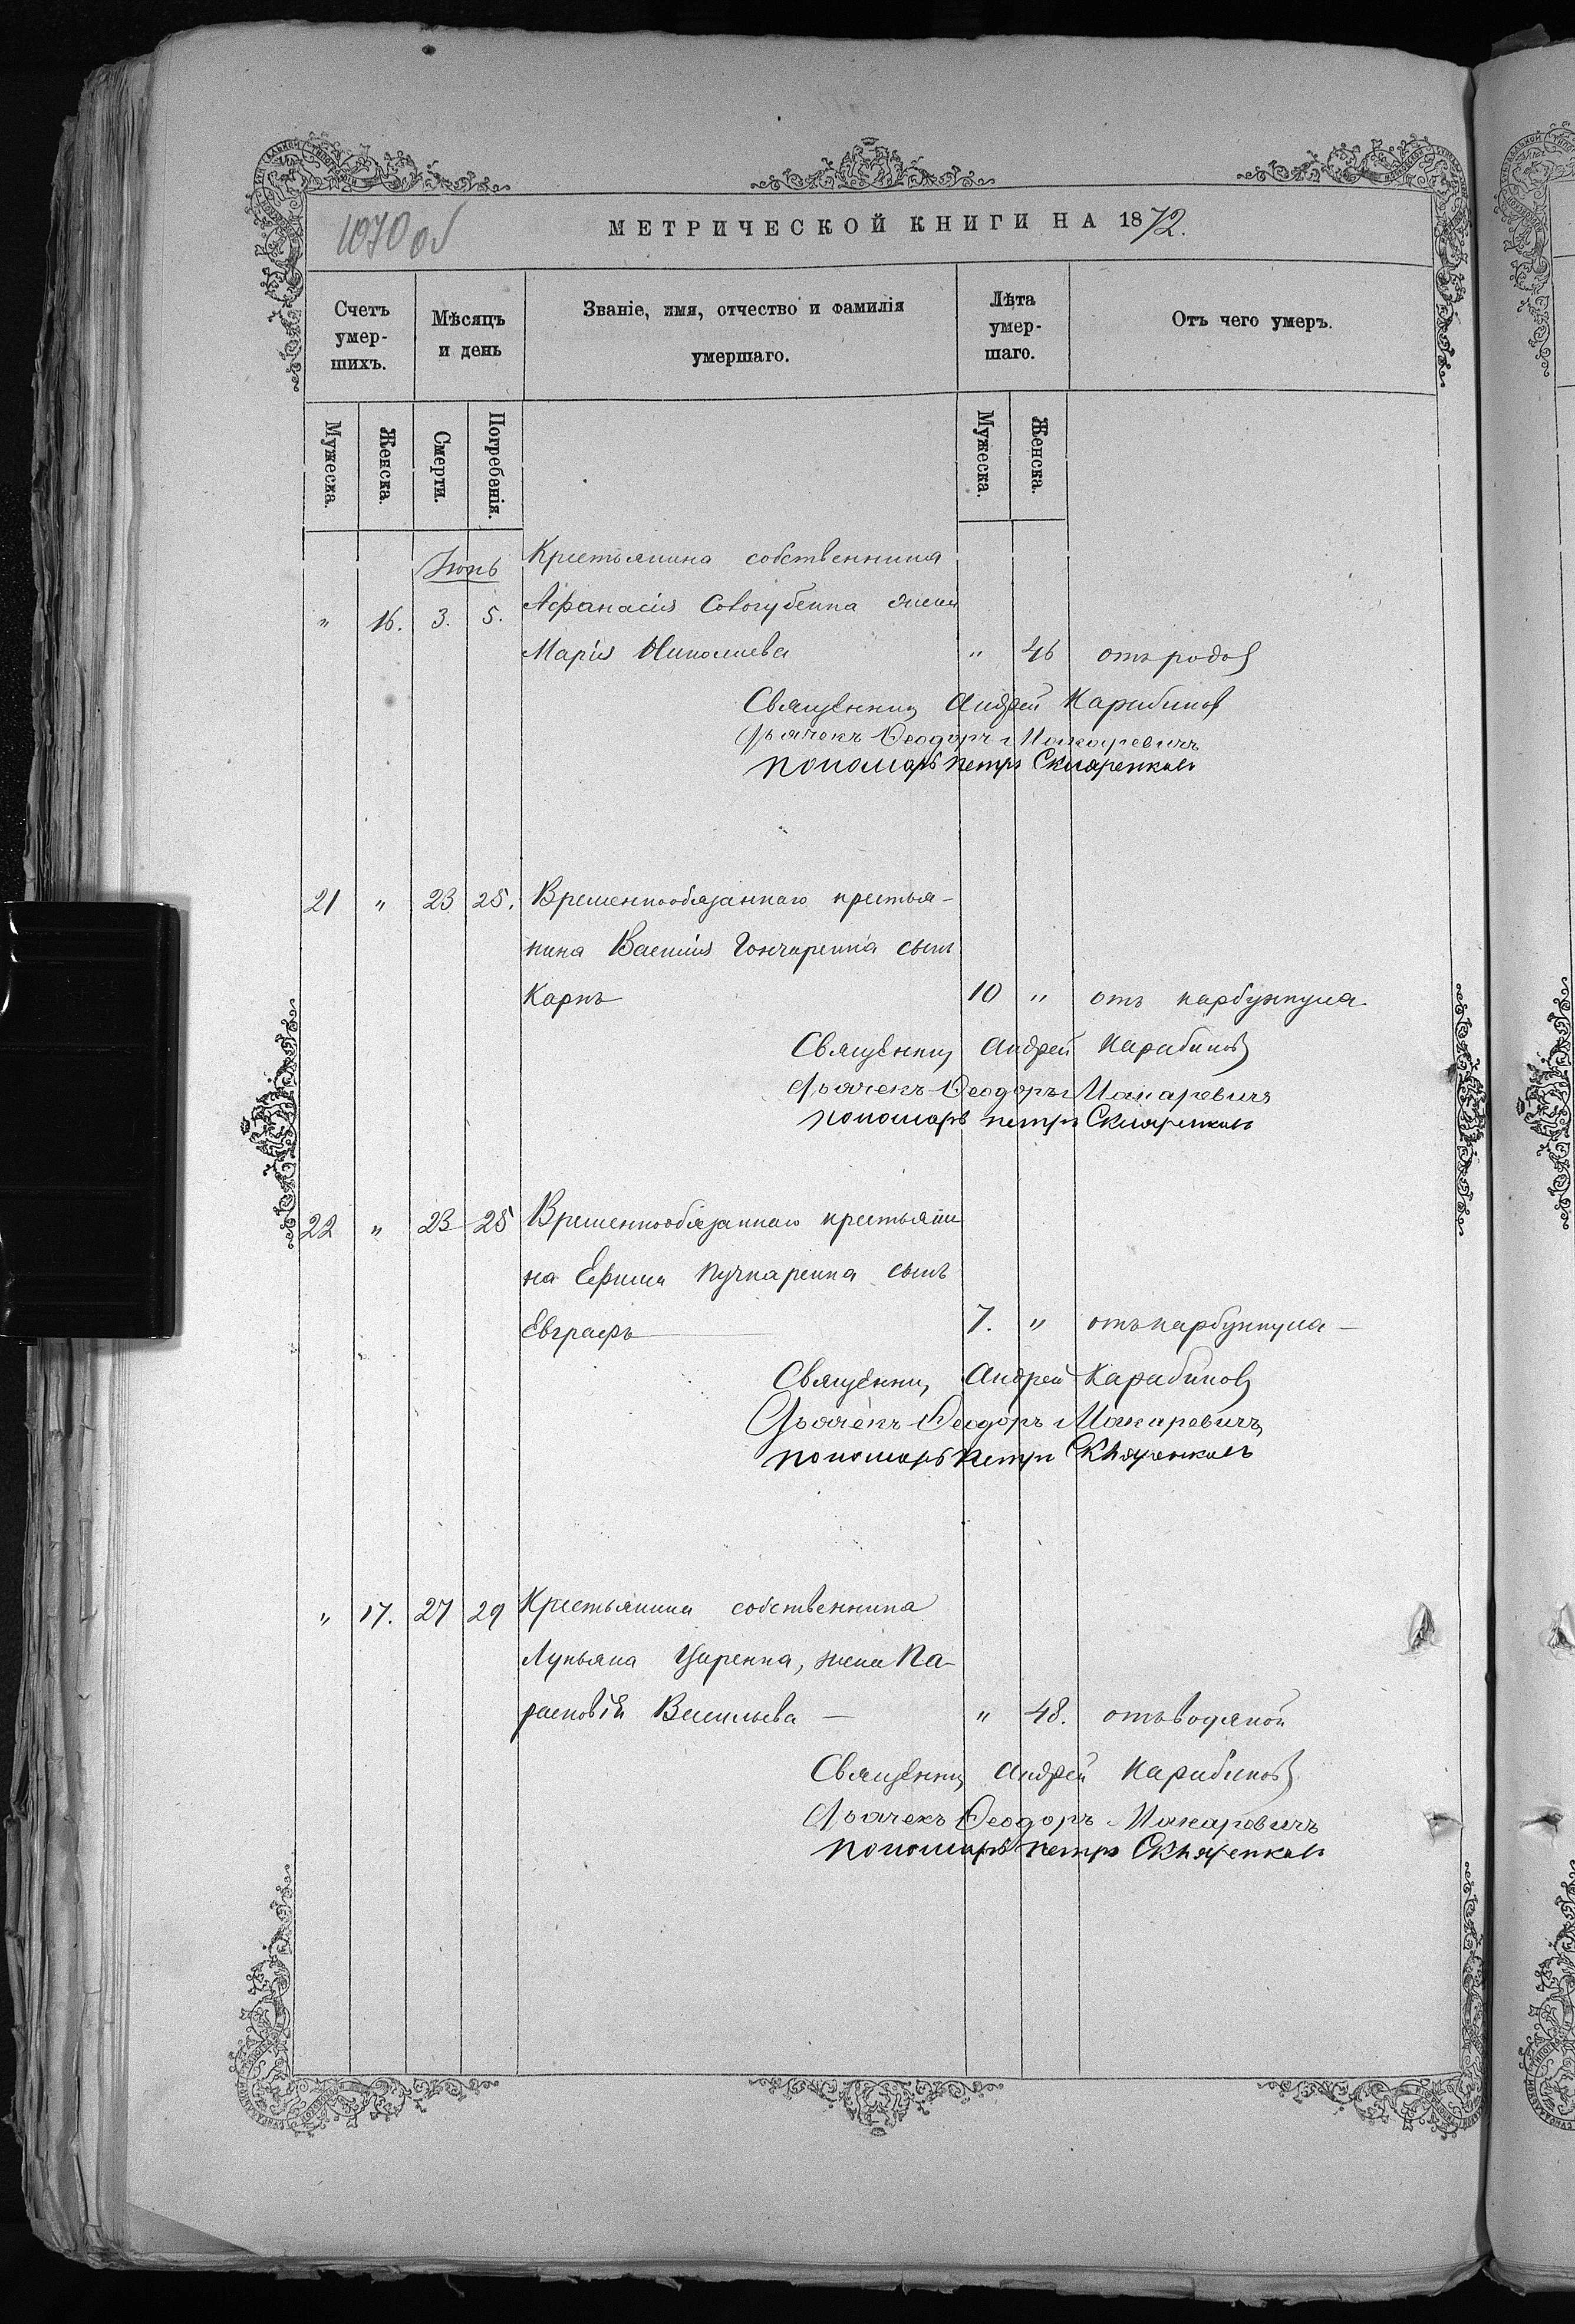 1070 об
МЕТРИЧЕСКОЙ КНИГИ НА 1872.
Счетъ умер-шихъ.
Мѣсяцъ и день
Званіе, имя, отчество и фамилія умершаго.
Лѣта умер-шаго.
Отъ чего умеръ.
Мужеска. Женска. Смерти. Погребенія. Мужеска. Женска.
Іюнь Крестьянина собственника
" 16. 3. 5. Афанасія Сологубенка жена
Марія Николаева " 46 отъ родов
Священник Андрей Карабинов
Дьячекъ Ѳеодоръ Макаревичъ
пономарь петръ Скляренковъ
21 " 23 25. Временнообязаннаго крестья-
нина Василія Гончаренка сынъ
Карпъ 10 " отъ карбункула
Священник Андрей Карабинов
Дьячекъ Ѳеодоръ Макаревичъ
пономарь петръ Скляренковъ
22 " 23 25 Временнообязаннаго крестьяни
на Ефима Кучкаренка сынъ
Евграфъ 7. " отъ карбункула —
Священник Андрей Карабинов
Дьячекъ Ѳеодоръ Макаревичъ
пономарь петръ Скляренковъ
" 17. 27 29 Крестьянина собственника
Лукьяна Царенка, жена Па-
расковія Васильева — " 48. отъ водяной
Священник Андрей Карабинов
Дьячекъ Ѳеодоръ Макаровичъ
пономарь петръ Скляренковъ